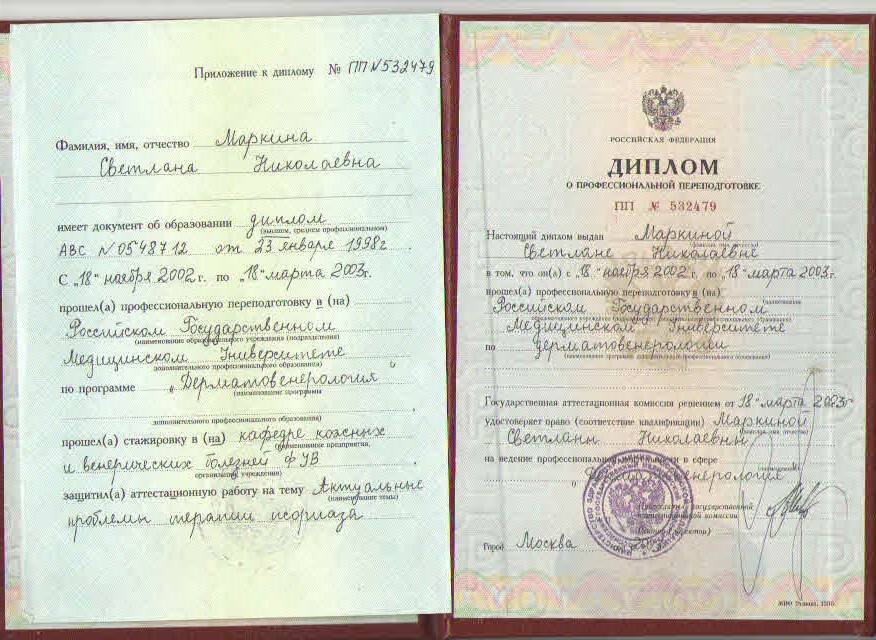 Приложение к диплому № ПП №532479
Фамилия, имя, отчество Маркина
Светлана Николаевна
имеет документ об образовании диплом
(высшем, среднем профессиональном)
АВС №0548712 от 23 января 1998г.
С „18" ноября 2002 г. по „18" марта 2003г.
прошел(а) профессиональную переподготовку в (на)
Российском Государственном
(наименование образовательного учреждения (подразделения)
Медицинском Университете
дополнительного профессионального образования)
по программе „Дерматовенерология"
(наименование программы
дополнительного профессионального образования)
прошел(а) стажировку в (на) кафедре кожных
(наименование предприятия,
и венерических болезней ФУВ
организации, учреждения)
защитил(а) аттестационную работу на тему Актуальные
(наименование темы)
проблемы терапии псориаза
РОССИЙСКАЯ ФЕДЕРАЦИЯ
ДИПЛОМ
О ПРОФЕССИОНАЛЬНОЙ ПЕРЕПОДГОТОВКЕ
ПП № 532479
Настоящий диплом выдан Маркиной
(фамилия, имя, отчество)
Светлане Николаевне
в том, что он(а) с „18" ноября 2002 г. по „18" марта 2003г.
прошел(а) профессиональную переподготовку в (на)
(наименование
Российском Государственном
Медицинском Университете
по дерматовенерологии
(наименование программы дополнительного профессионального образования)
Государственная аттестационная комиссия решением от „18" марта 2003г
удостоверяет право (соответствие квалификации) Маркиной
(фамилия, имя, отчество)
Светланы Николаевны
на ведение профессиональной деятельности в сфере
Председатель государственной
аттестационной комиссии
Город Москва